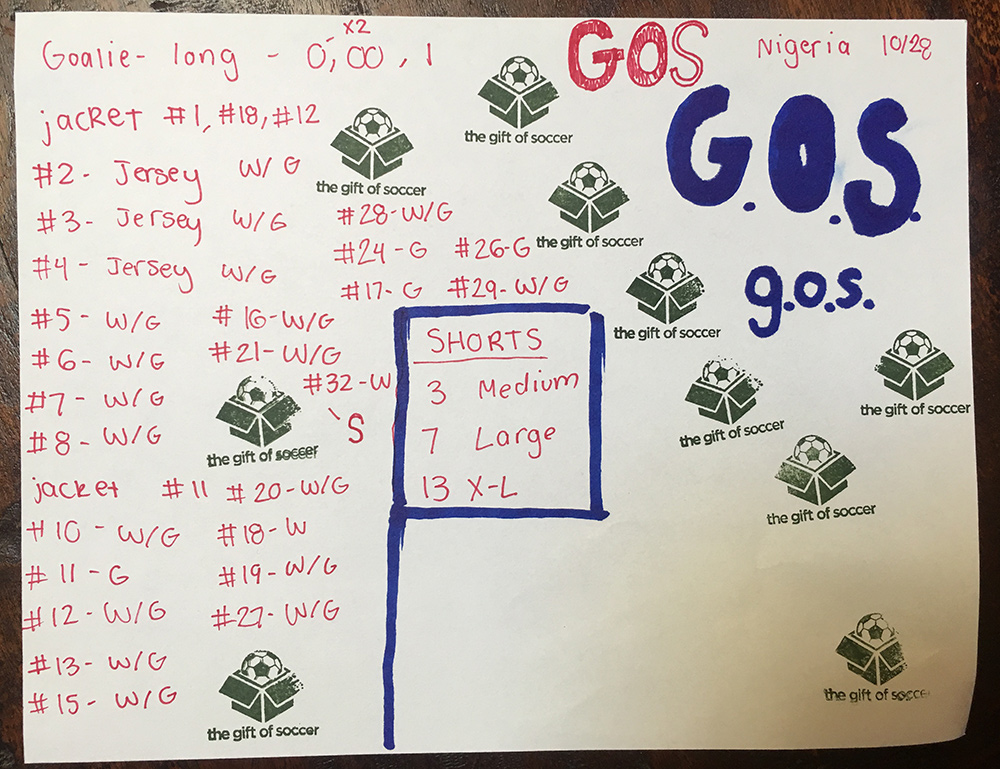 x2
Goalie- long - 0, 00, 1
GOS
Nigeria 10/28
G.O.S.
g.o.s.
jacket #1, #18, #12
#2- Jersey W/G
#3- Jersey W/G
#4- Jersey W/G
#5- W/G
#6- W/G
#7- W/G
#8- W/G
jacket #11
#10- W/G
#11- G
#12- W/G
#13- W/G
#15- W/G
#16-W/G
#21-W/G
#32-W
S
#20-W/G
#18-W
#19-W/G
#27-W/G
#28-W/G
#24-G #26-G
#17-G #29-W/G
SHORTS
3 Medium
7 Large
13 X-L
the gift of soccer
the gift of soccer
the gift of soccer
the gift of soccer
the gift of soccer
the gift of soccer
the gift of soccer
the gift of soccer
the gift of soccer
the gift of soccer